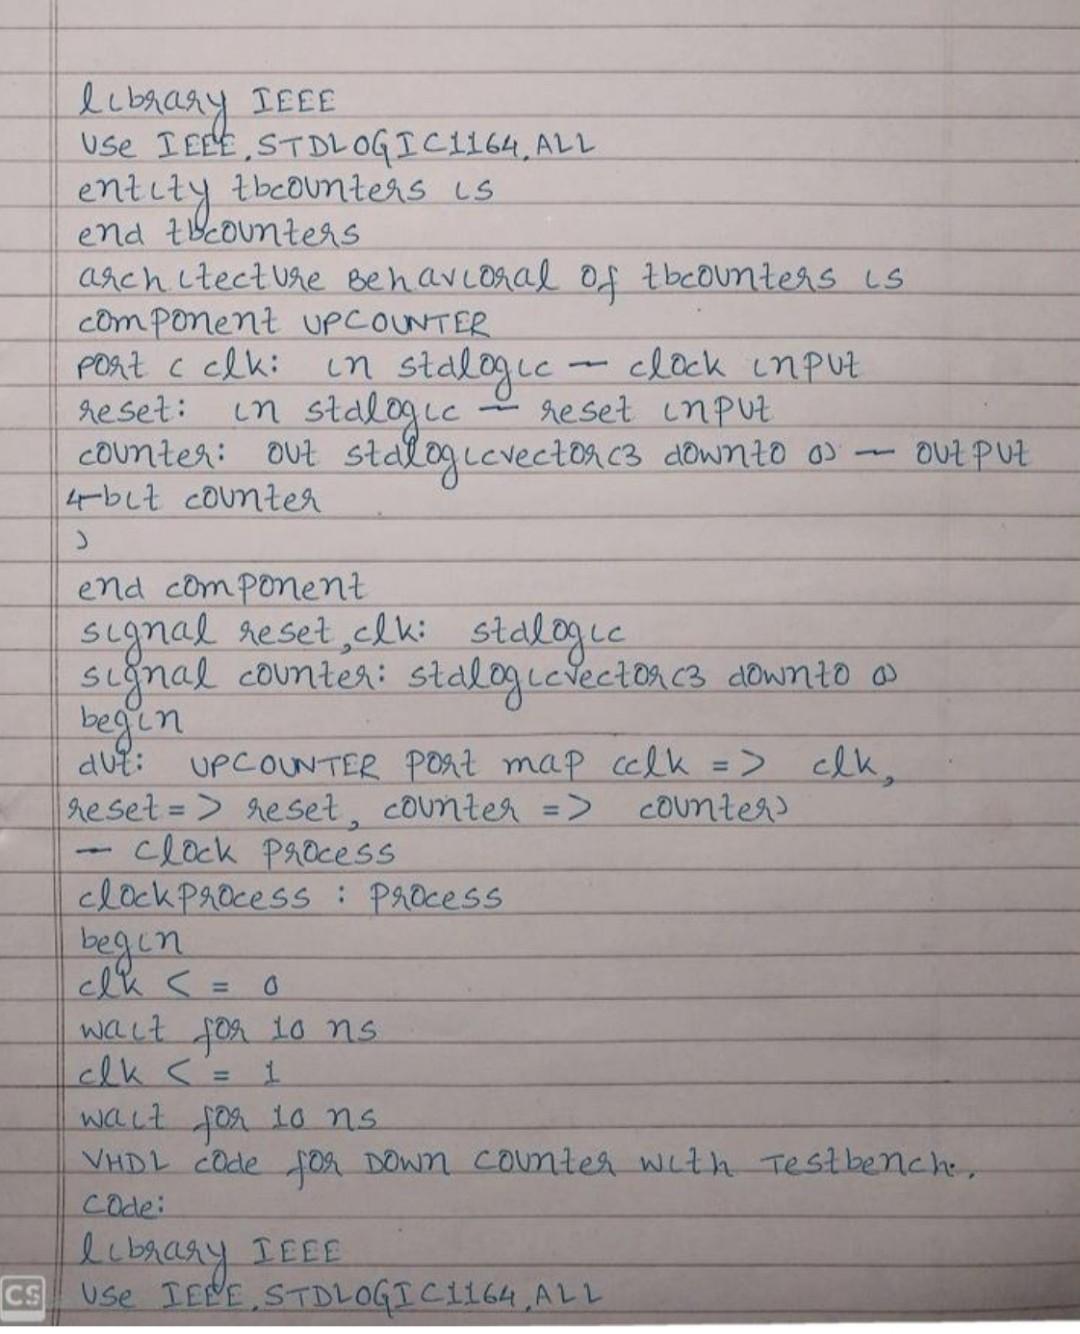 library IEEE
use IEEE.STDLOGIC1164.ALL
entity tbcounters is
end tbcounters
architecture Behavioral of tbcounters is
component UPCOUNTER
port ( clk: in stdlogic — clock input
reset: in stdlogic — reset input
counter: out stdlogicvector(3 downto 0) — output
4-bit counter
)
end component
signal reset,clk: stdlogic
signal counter: stdlogicvector(3 downto 0)
begin
dut: UPCOUNTER port map (clk => clk,
reset => reset, counter => counter)
— clock process
clockprocess : process
begin
clk <= 0
wait for 10 ns
clk <= 1
wait for 10 ns
VHDL code for DOWN counter with Testbench.
Code:
library IEEE
use IEEE.STDLOGIC1164.ALL
CS